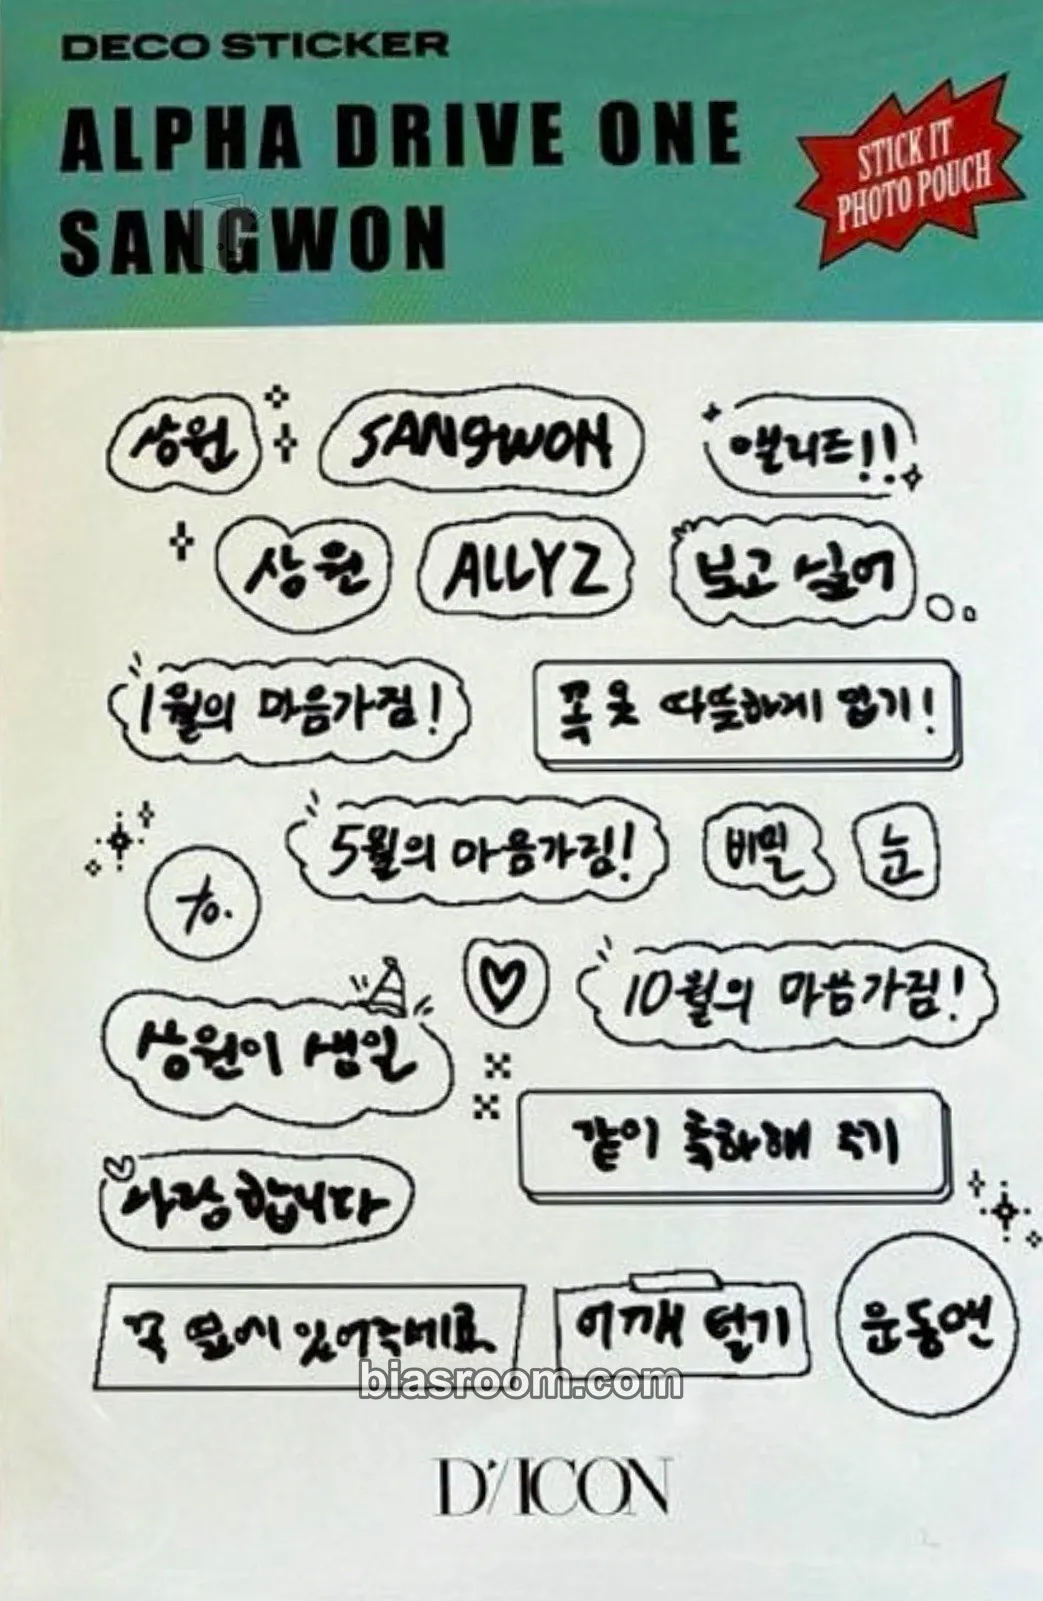 DECO STICKER
ALPHA DRIVE ONE
SANGWON
STICK IT
PHOTO POUCH
상원
SANGWON
앨리즈!!
상원
ALLYZ
보고 싶어
1월의 마음가짐!
꼭 옷 따뜻하게 입기!
5월의 마음가짐!
비밀
눈
to.
10월의 마음가짐!
상원이 생일
같이 축하해 주기
사랑합니다
꼭 옆에 있어주세요
어깨 털기
운동맨
biasroom.com
D'/ICON